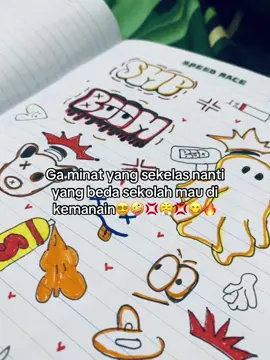 SPEED RACE
SMP
BOOM
Ga minat yang sekelas nanti
yang beda sekolah mau di
kemanain😍🤪💢🥳💢😍🔥